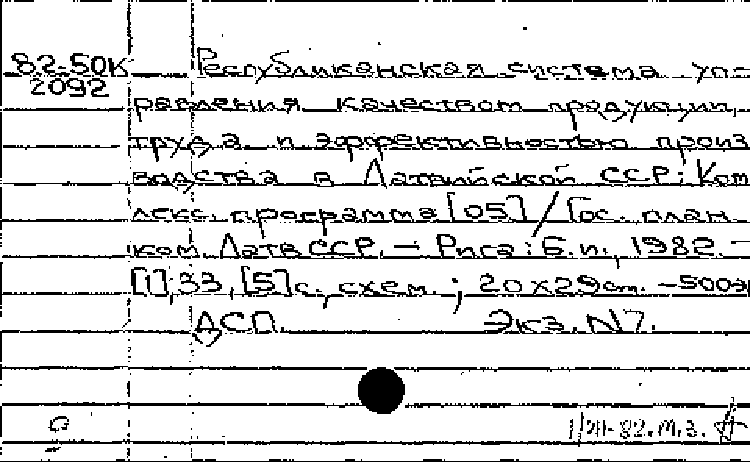 82-50К Республиканская система уп-
2092
равления качеством продукции,
труда и эффективностью произ
водства в Латвийской ССР: Ком
лекс. программа [05] / Гос. план.
ком. ЛатвССР. — Рига: Б.и., 1982. —
[1], 33, [5] с. схем. ; 20х29 см. —500э
ДСП. Экз. N7.
82. М.З.